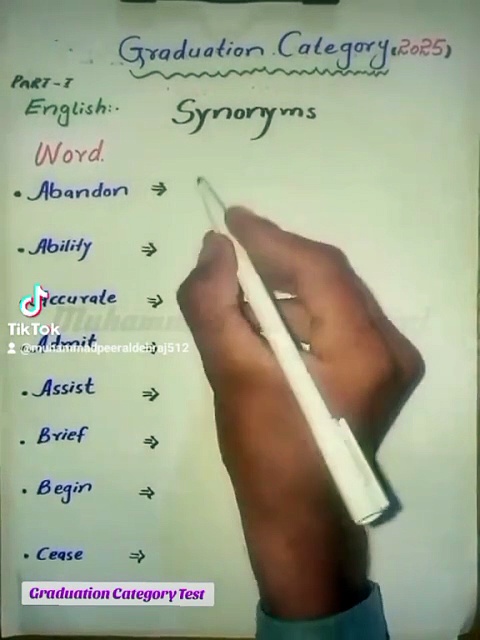 Graduation Category (2025)
PART-I
English:- Synonyms
Word.
• Abandon ⇒
• Ability ⇒
Accurate ⇒
TikTok
Admit ⇒
@muhammadpeeraldehraj512
• Assist ⇒
• Brief ⇒
• Begin ⇒
• Cease ⇒
Graduation Category Test